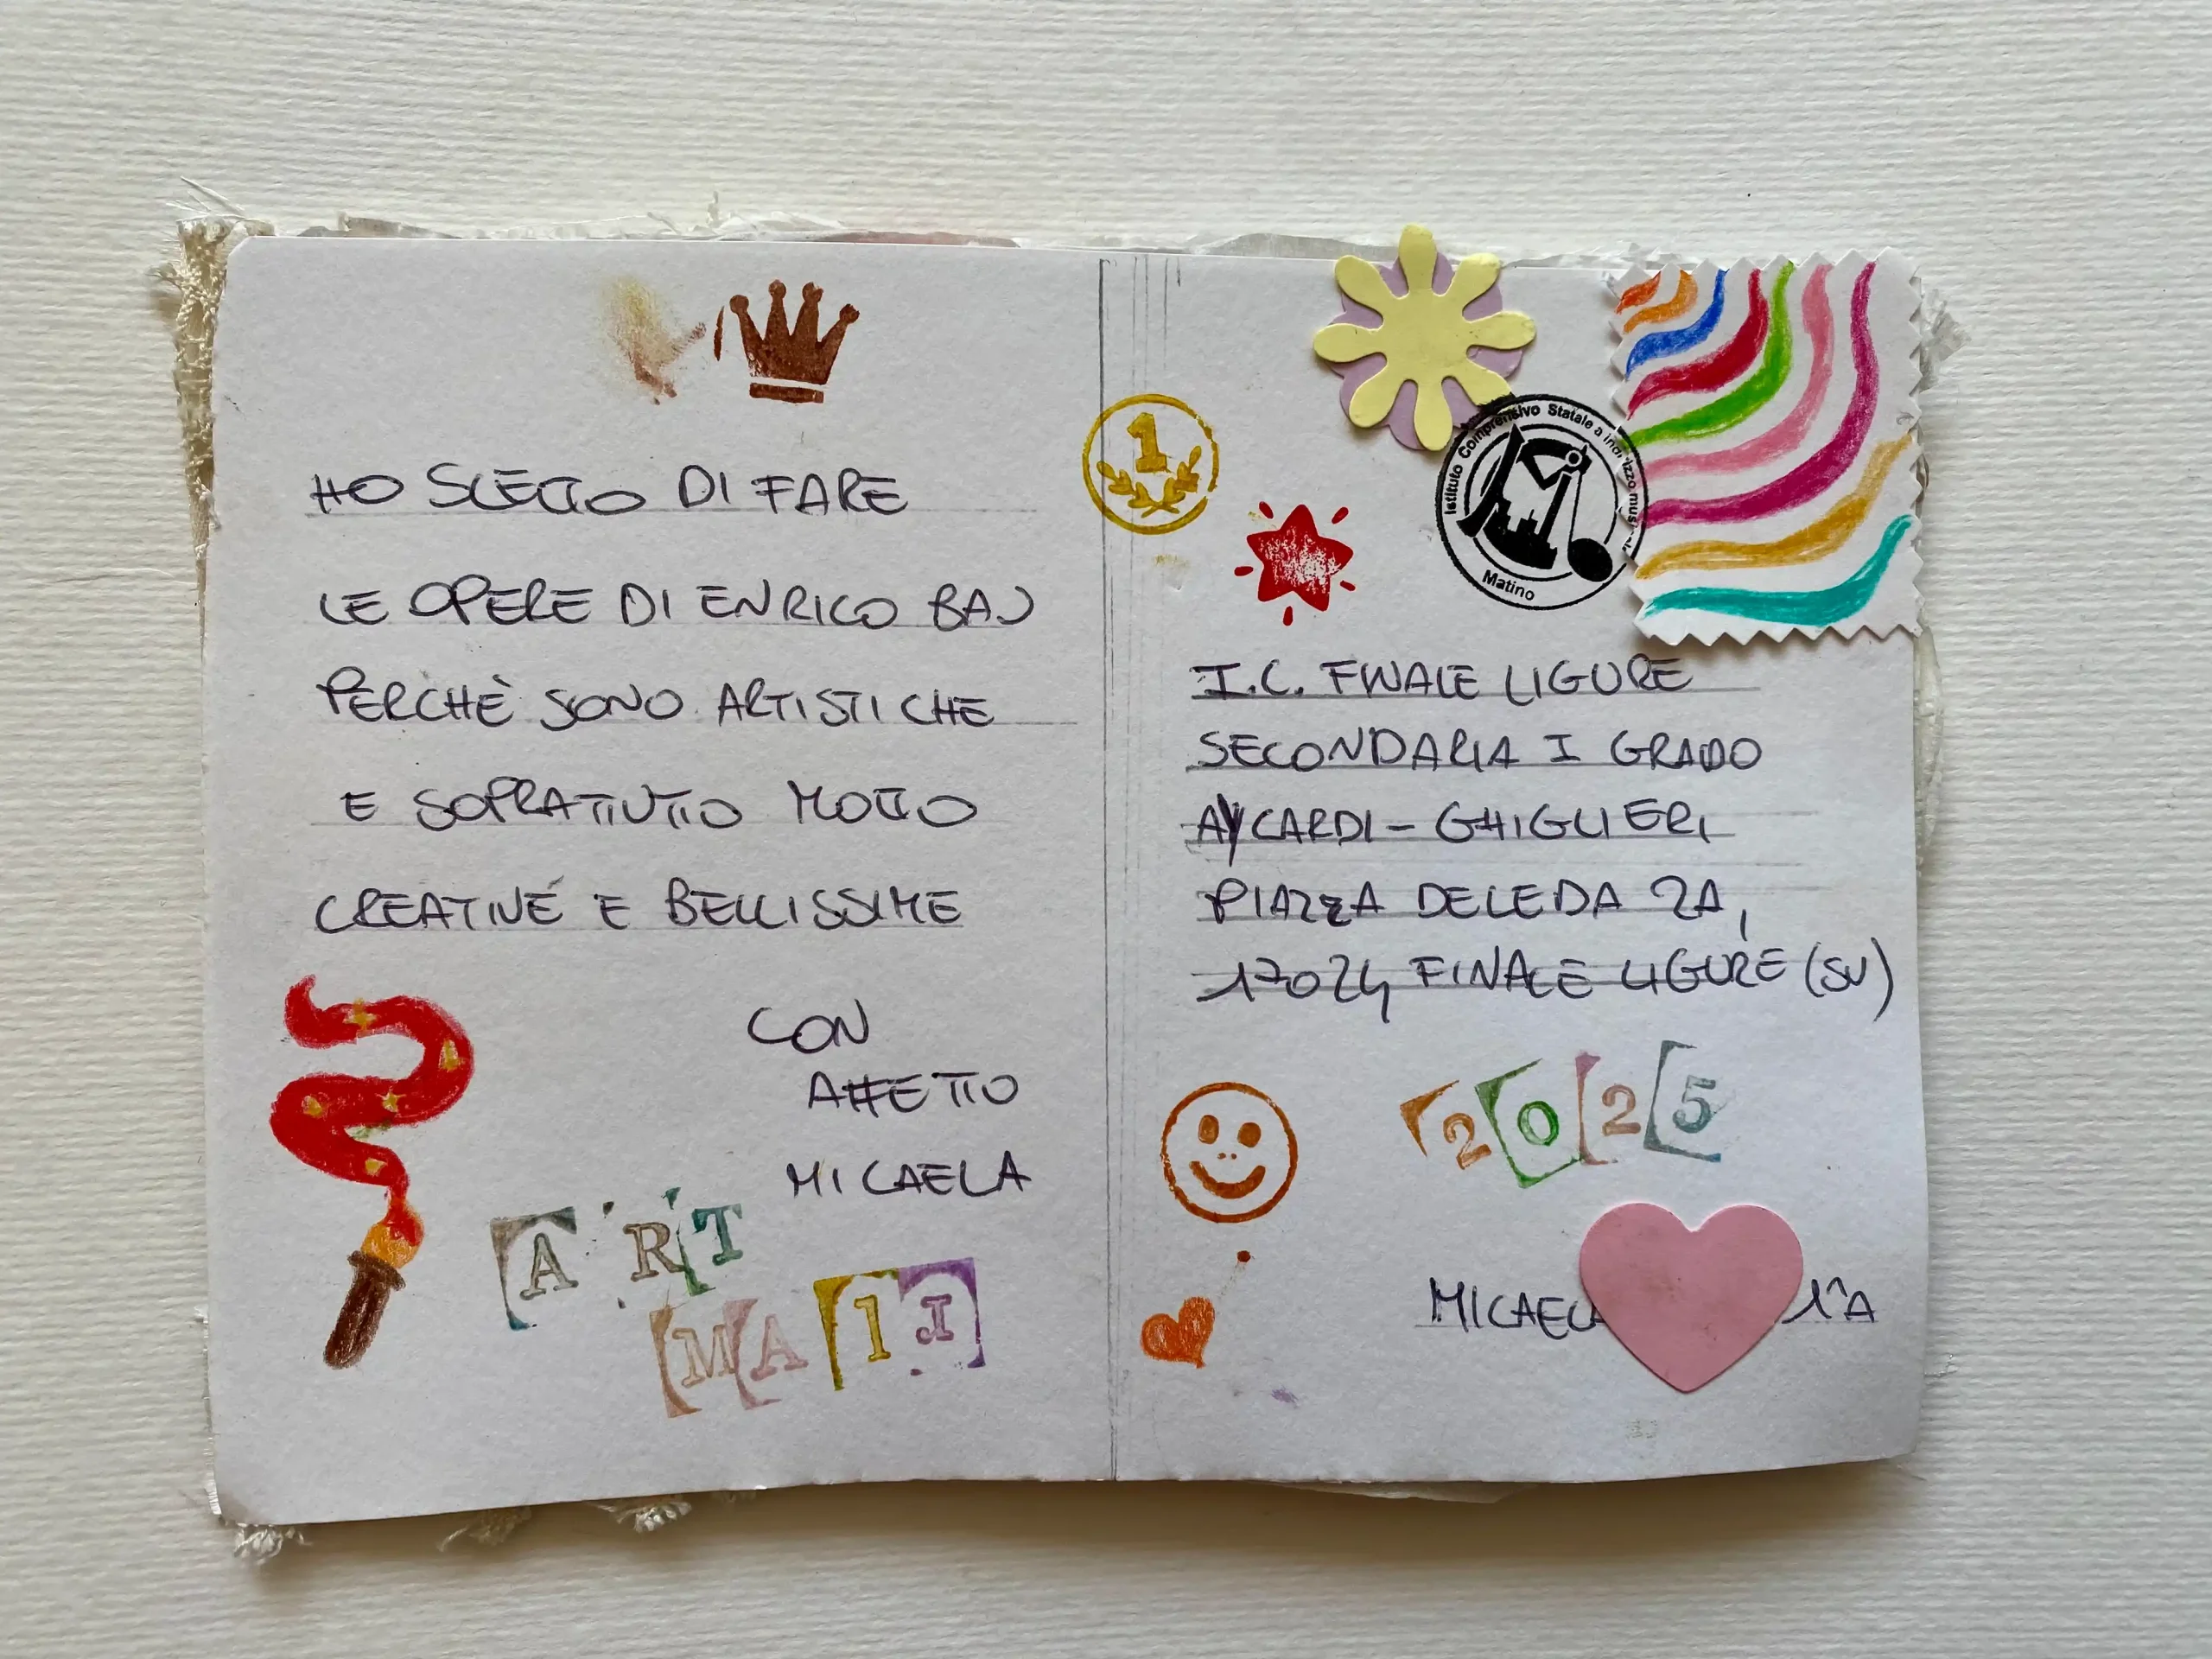 HO SCELTO DI FARE
LE OPERE DI ENRICO BAJ
PERCHÈ SONO ARTISTICHE
E SOPRATTUTTO MOLTO
CREATIVE E BELLISSIME
CON
AFFETTO
MICAELA
ART
MA1I
1
Istituto Comprensivo Statale a indirizzo musicale
Matino
I.C. FINALE LIGURE
SECONDARIA I GRADO
AYCARDI - GHIGLIERI
PIAZZA DELEDDA 2A,
17024 FINALE LIGURE (SV)
2025
MICAELA 1^A